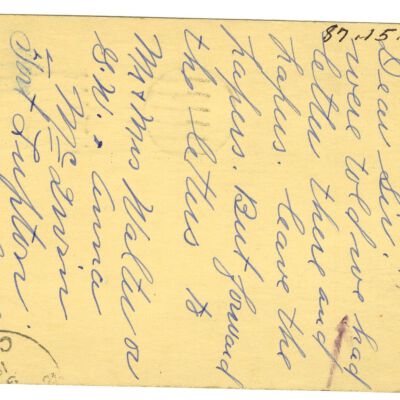 87.15.
Dear Sir.
were told we had
letters there and
papers. Leave the
papers. But forward
the letters to
Mr & Mrs Walter or
G.W. & Anna
McIrvin
Fort Lupton